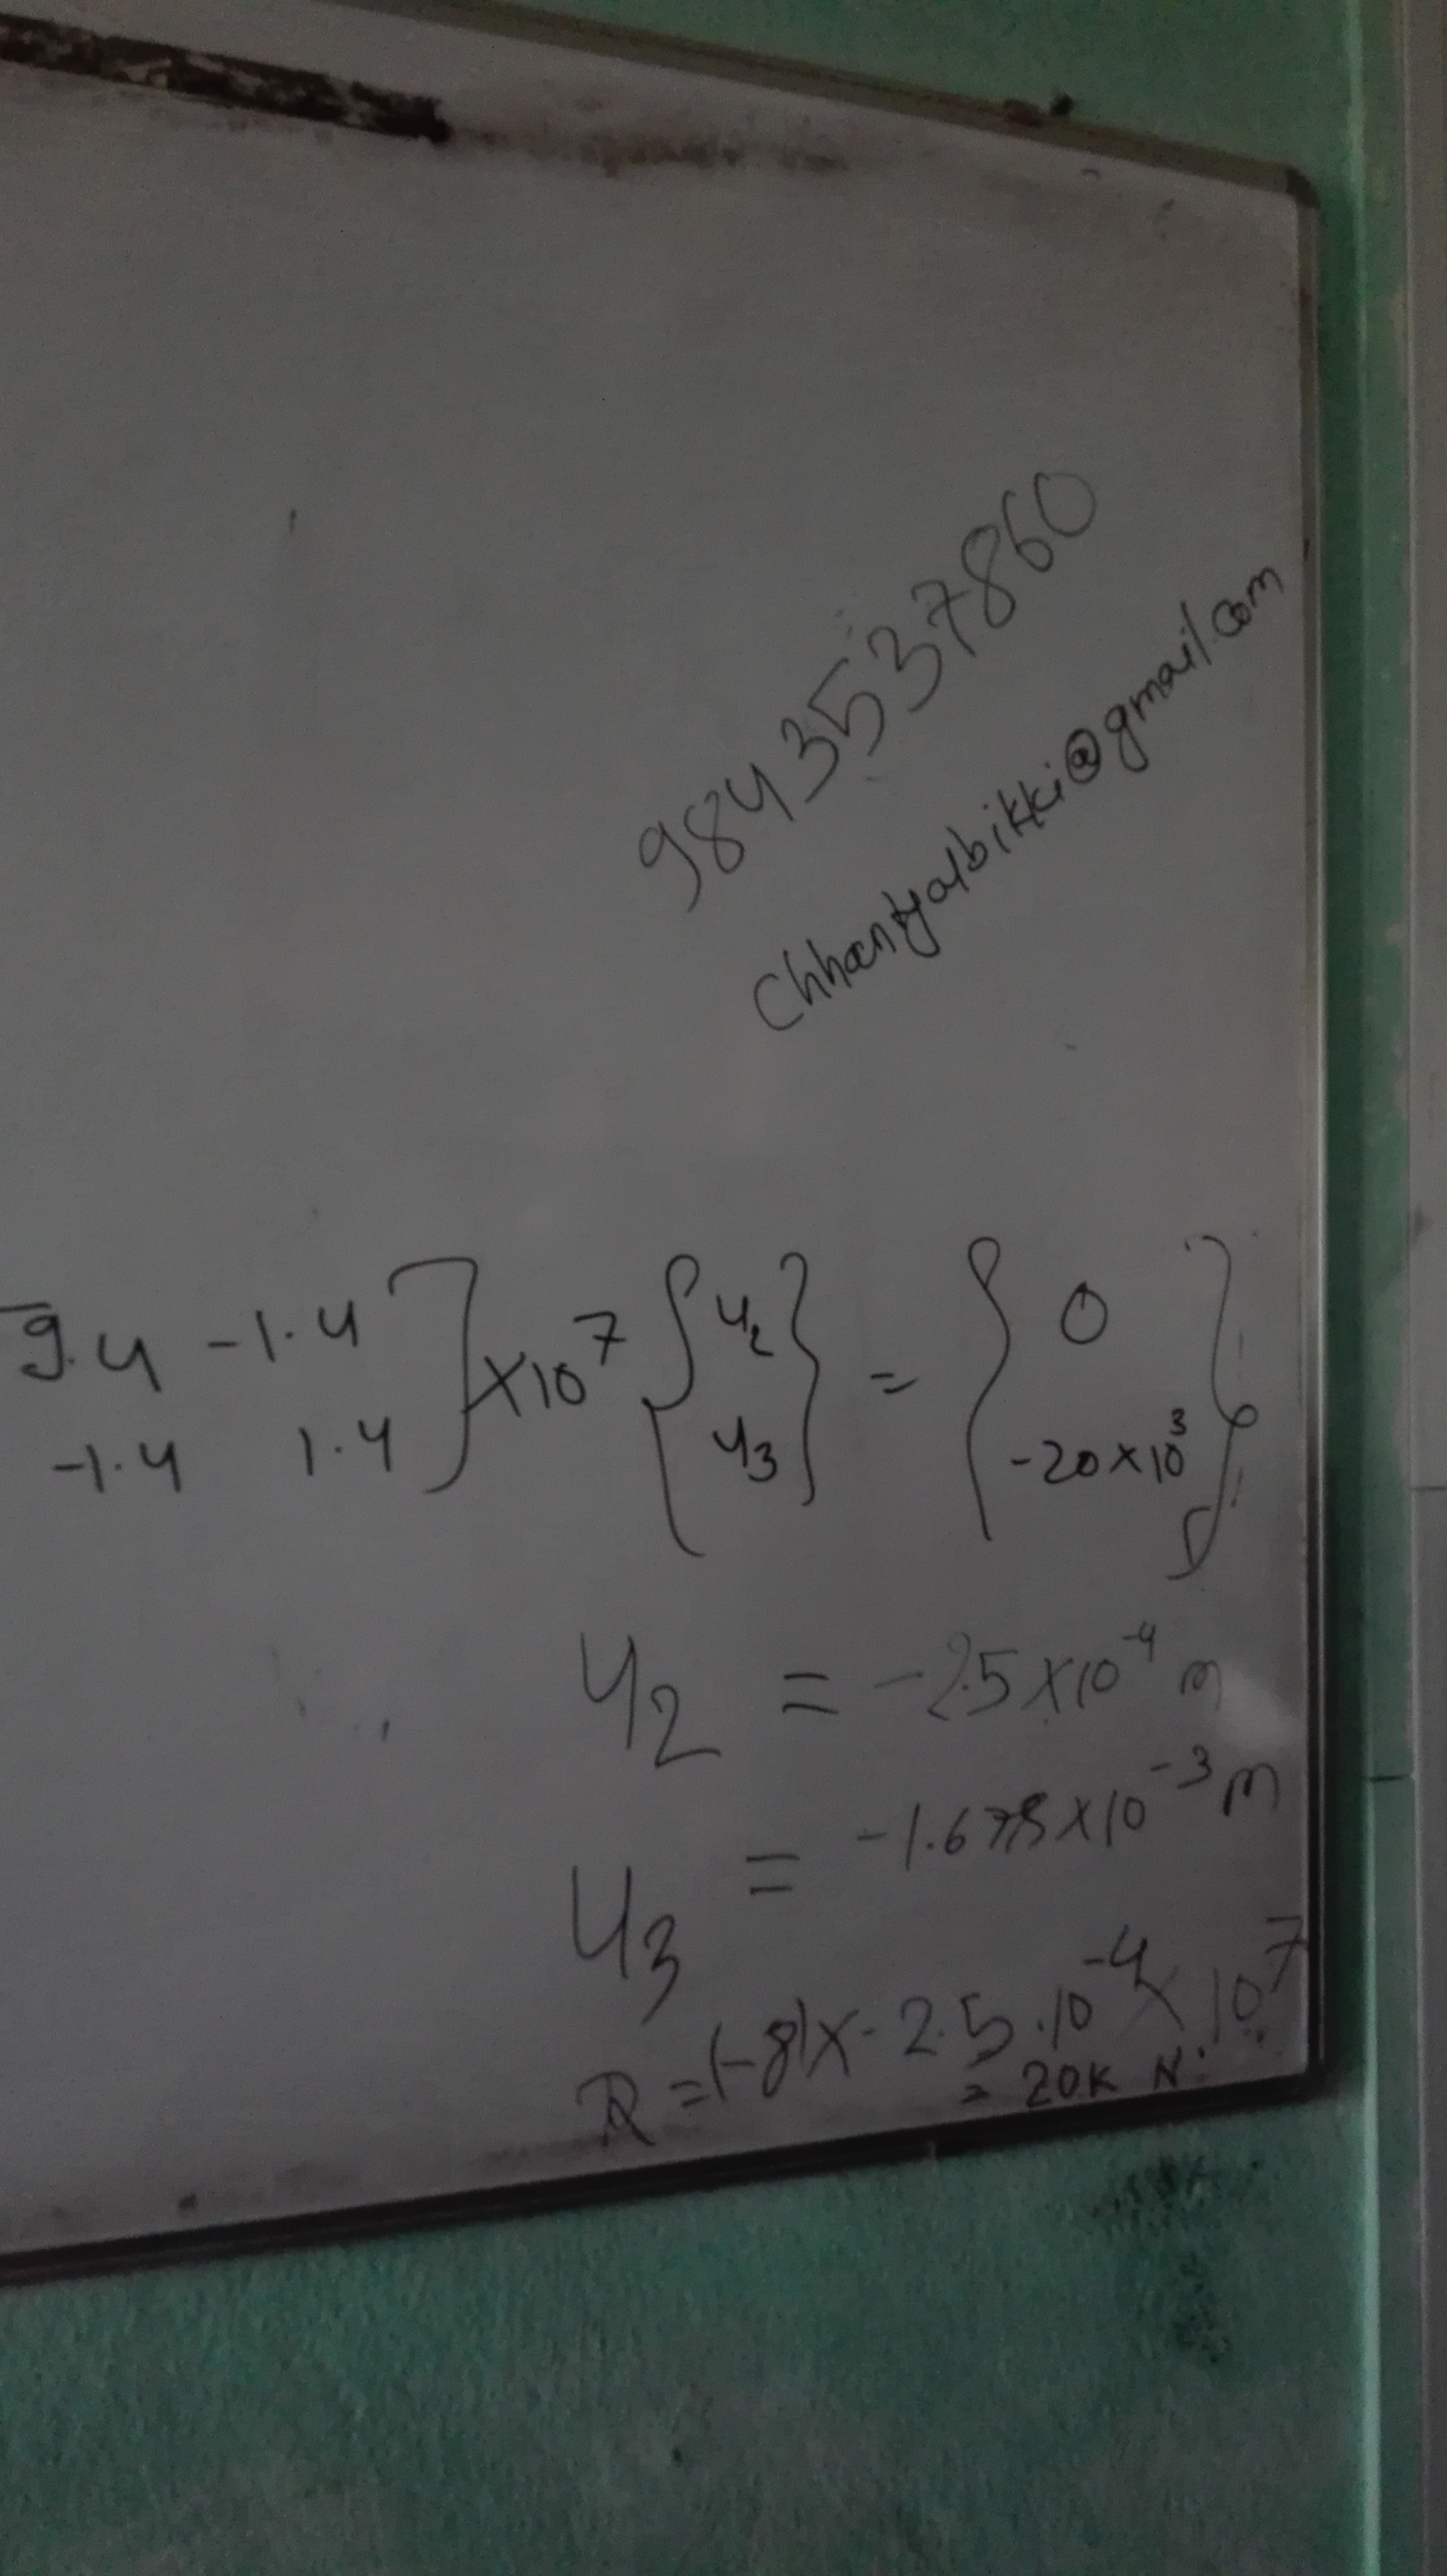 9843537860
chhantyalbikki@gmail.com
9.4 -1.4 ] ×10⁷ { u₂ } = { 0 }
-1.4 1.4 u₃ -20×10³
u₂ = -2.5×10⁻⁴ m
u₃ = -1.678×10⁻³ m
R = (-8)×-2.5.10⁻⁴×10⁷
= 20K N.